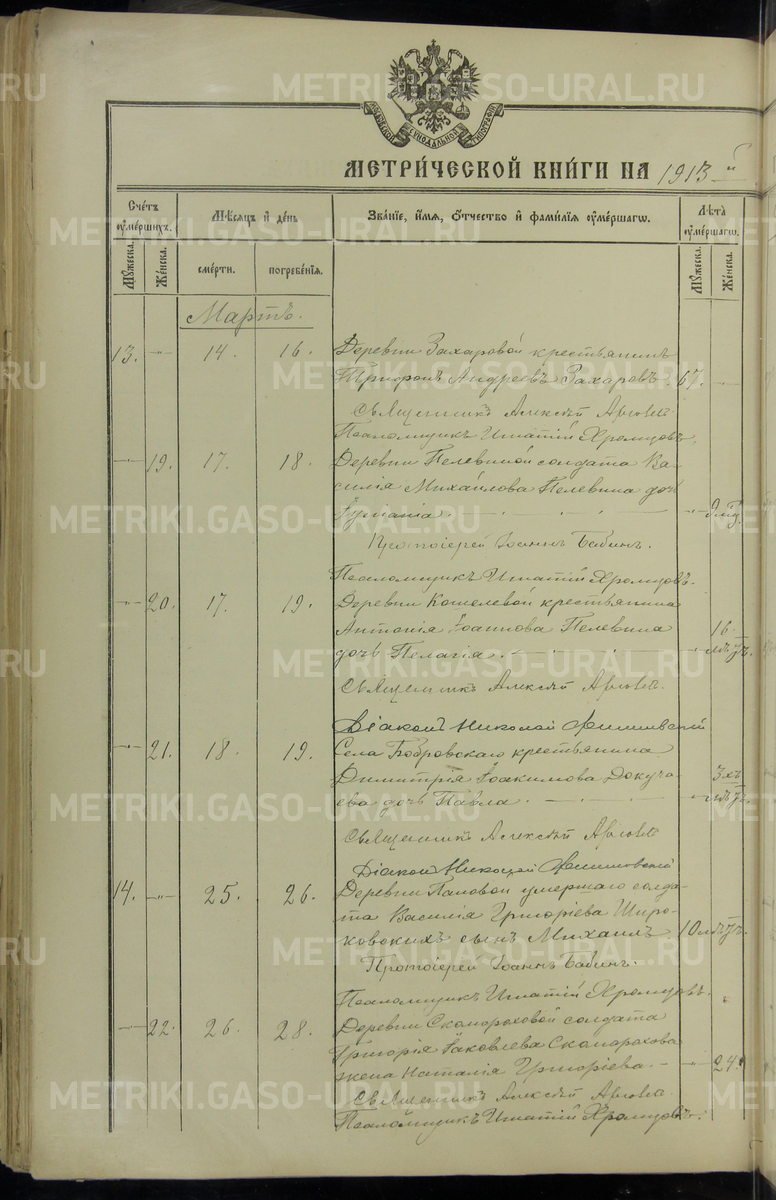 МОСКОВСКОЙ СѴНОДАЛЬНОЙ ТИПОГРАФІИ
МЕТРИ́ЧЕСКОЙ КНИ́ГИ НА 1913 й
Счётъ ᲂу҆ме́ршихъ.
Мѣ́сяцъ и҆ де́нь
Зва́нїе, и҆́мя, ѻ҆́тчество и҆ фами́лїя ᲂу҆ме́ршагѡ.
Лѣ́та ᲂу҆ме́ршагѡ.
Мꙋ́жеска.
Же́нска.
сме́рти.
погребе́нїя.
Мꙋ́жеска.
Же́нска.
Мартъ.
13. —"— 14. 16. Деревни Захаровой крестьянинъ
Трифонъ Андреевъ Захаровъ. 67. —
Священникъ Алексѣй
Псаломщикъ Игнатій Хромцовъ.
—"— 19. 17. 18. Деревни Пелевиной солдата Ва-
силія Михайлова Пелевина дочь
—
Протоіерей Іоаннъ Бабинъ.
Псаломщикъ Игнатій Хромцовъ.
—"— 20. 17. 19. Деревни Кошелевой крестьянина
Антонія Іоаннова Пелевина 16.
дочь Пелагія. —
Священникъ Алексѣй
Діаконъ Николай
—"— 21. 18. 19. Села Бобровскаго крестьянина
Димитрія Іоакимова Докуча- 3хъ
ева дочь Павла. —
Священникъ Алексѣй
Діаконъ Николай
14. —"— 25. 26. Деревни Пановой умершаго солда-
та Василія Григоріева Широ-
ковскихъ сынъ Михаилъ 10
Протоіерей Іоаннъ Бабинъ.
Псаломщикъ Игнатій Хромцовъ.
—"— 22. 26. 28. Деревни Скомороховой солдата
Григорія Яковлева Скоморохова
жена Наталія Григоріева. — 24.
Священникъ Алексѣй
Псаломщикъ Игнатій Хромцовъ.
METRIKI.GASO-URAL.RU